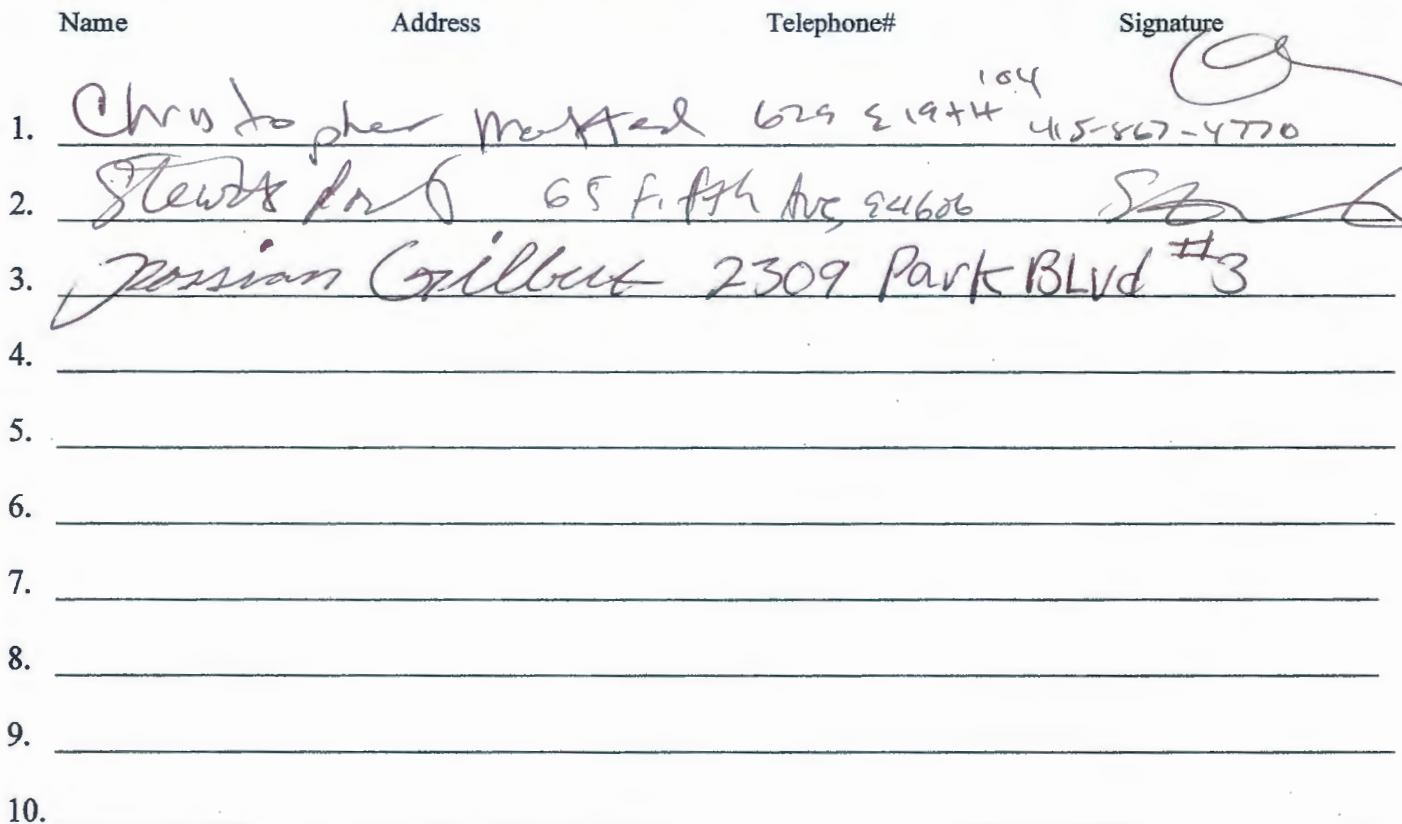 Name Address Telephone# Signature
1. Christopher 629 E 19th 104 415-867-4770
2. 65 Fifth Ave, 94606
3. Gilbert 2309 Park BLvd #3
4.
5.
6.
7.
8.
9.
10.